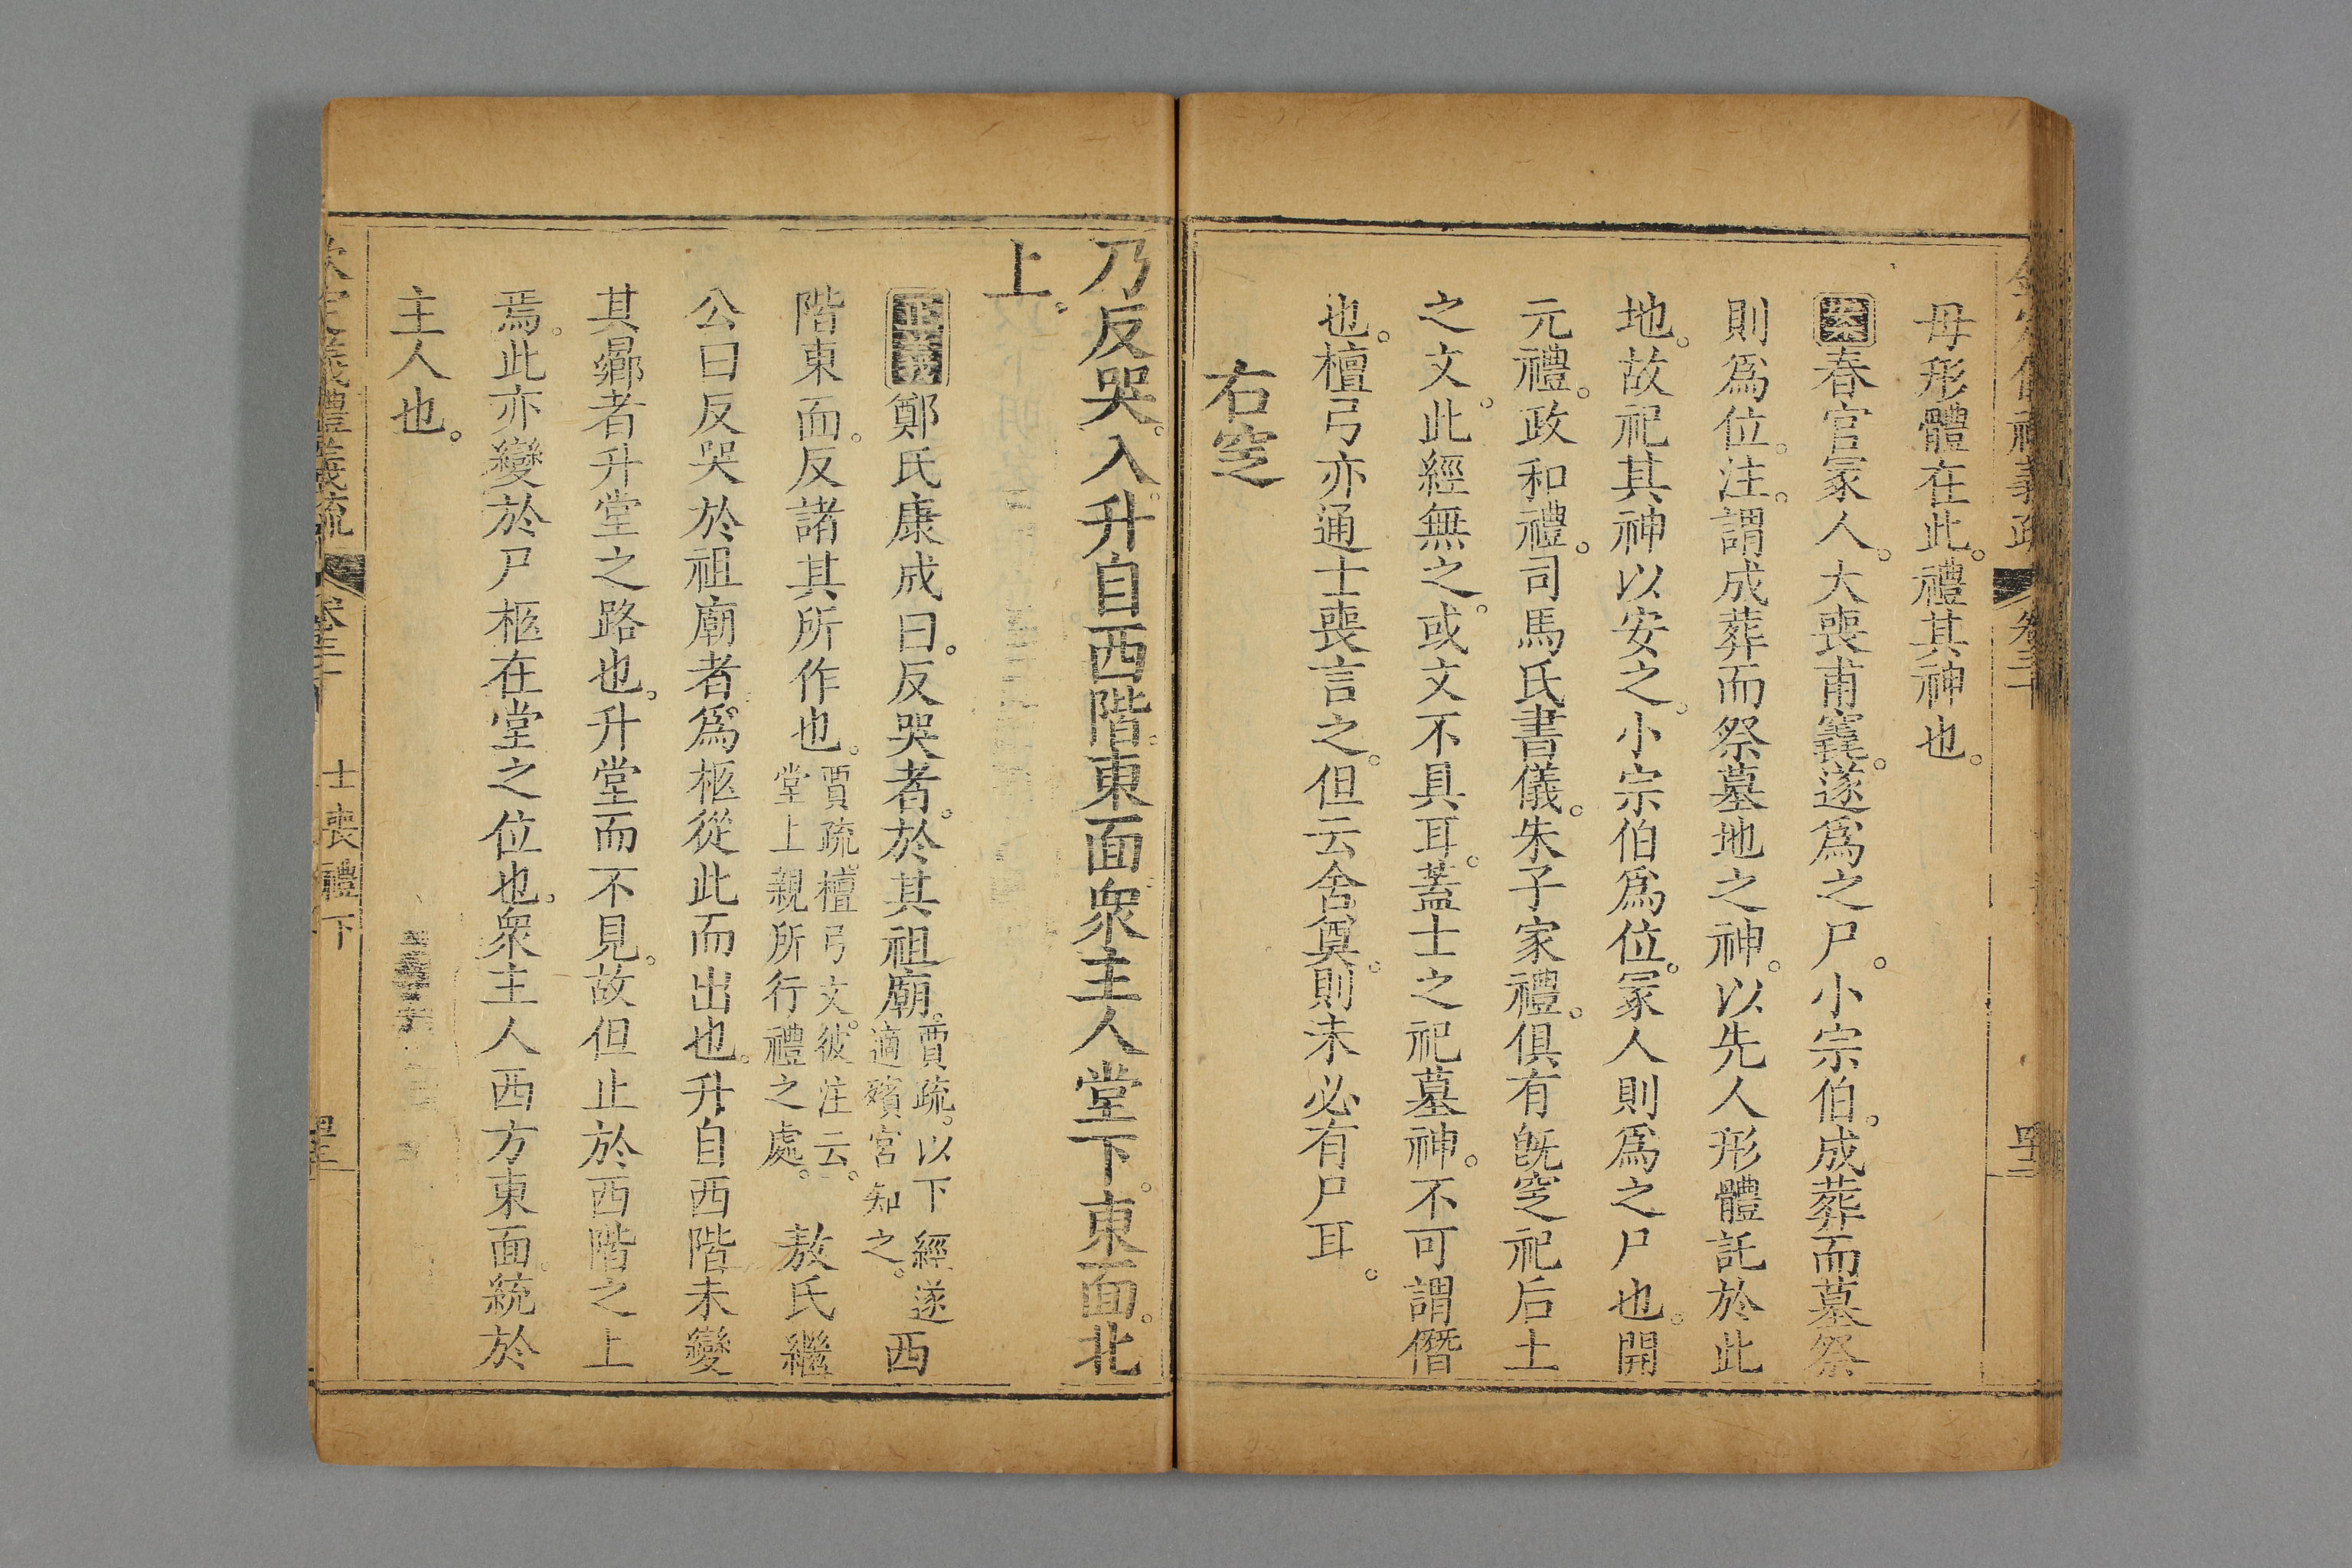 欽定儀禮義疏 卷三十 
母形體在此。禮其神也。
案春官冢人。大喪甫竁。遂爲之尸。小宗伯。成葬而墓祭
則爲位。注。謂成葬而祭墓地之神。以先人形體託於此
地。故祀其神以安之。小宗伯爲位。冢人則爲之尸也。開
元禮。政和禮。司馬氏書儀。朱子家禮。俱有旣窆祀后土
之文。此經無之。或文不具耳。蓋士之祀墓神。不可謂僭
也。檀弓亦通士喪言之。但云舍奠。則未必有尸耳。
右窆
乃反哭。入。升自西階。東面。衆主人堂下。東面。北
上。
正義鄭氏康成曰。反哭者。於其祖廟。賈疏。以下經遂適殯宮知之。西
階東面。反諸其所作也。賈疏。檀弓文。彼注云。堂上親所行禮之處。 敖氏繼
公曰反哭於祖廟者。爲柩從此而出也。升自西階未變
其曏者升堂之路也。升堂而不見。故但止於西階之上
焉。此亦變於尸柩在堂之位也。衆主人西方東面。統於
主人也。
欽定儀禮義疏 卷三十 士喪禮下